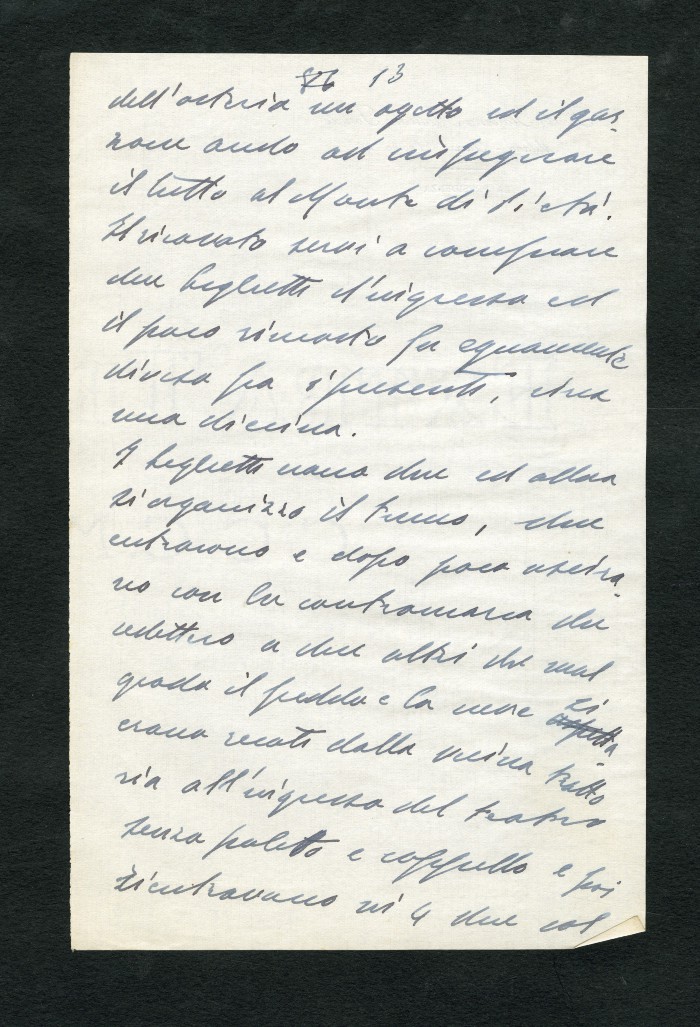 13
dell'osteria un ogetto ed il gar-
zone andò ad impegnare
il tutto al Monte di Pietà.
Il ricavato servì a comprare
due biglietti d'ingresso ed
il poco rimasto fu equamente
diviso fra i presenti, circa
una diecina.
I biglietti erano due ed allora
si organizzo il turno, due
entrarono e dopo poco uscira-
no con la contromarca che
cedettero a due altri che mal
grado il freddo e la neve si
erano recati dalla vicina tratto
ria all'ingresso del teatro
senza paletto e cappello e poi
rientravano in 4 due col